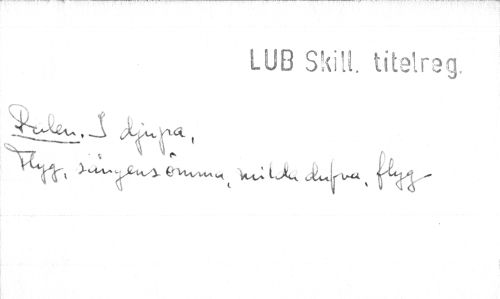 LUB Skill. titelreg.
Dalen. I djupa,
Flyg, sångens ömma, milda dufva, flyg